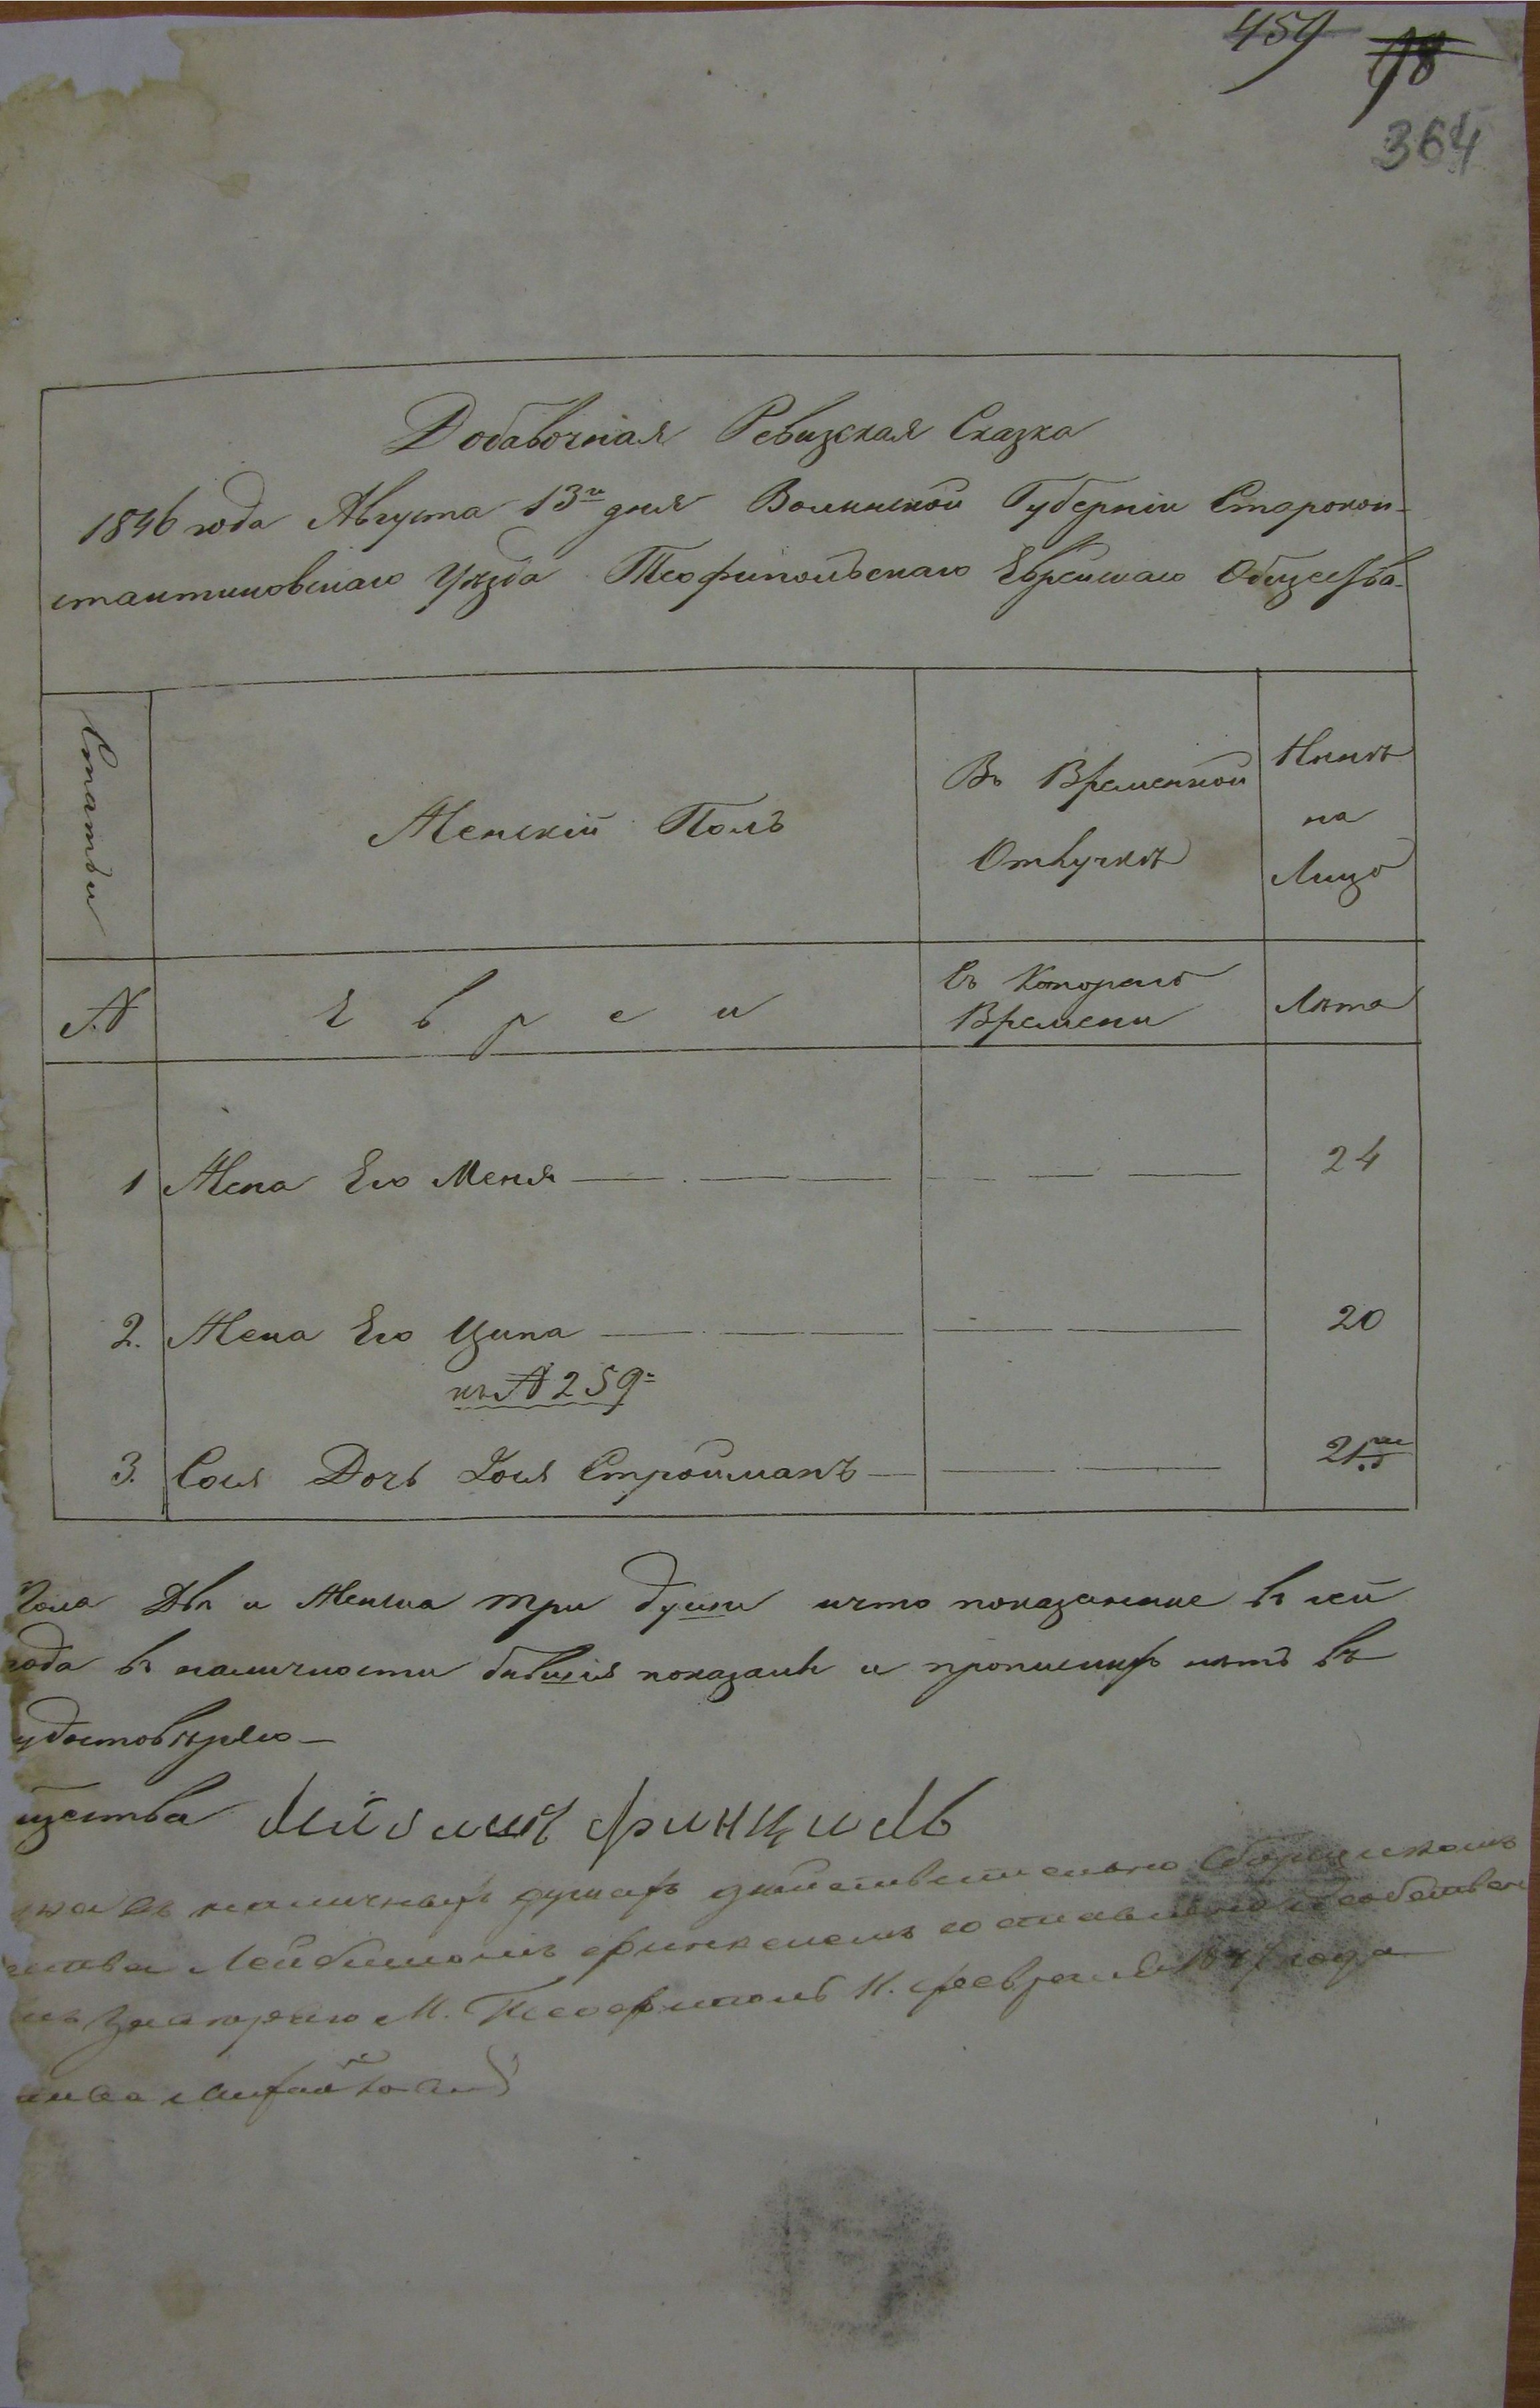 459 98
364
Добавочная Ревизская Сказка
1846 года Августа 13го дня Волынской Губерніи Старокон-
стантиновскаго Уѣзда Теофипольскаго Еврейскаго Общества.
Статьи
Женскій Полъ
Въ Временной
Отлучкѣ
Нынѣ
на
Лицо
№
Евреи
Съ Котораго
Времени
Лѣта
1 Жена Его Меня 24
2. Жена Его Ципа 20
къ № 259=
3. Соня Дочь Іоля Стройманъ 21
Пола Двѣ и Женска три души и что показанные въ сей
года въ наличности бывшія показаны и прописныхъ нѣтъ въ
удостовѣряю
щества финциль
въ наличныхъ душахъ дѣйствительно Сборщикомъ
ства Лейбишомъ финкелемъ составлена и собствен
М. Теофиполь февраля 1847 года